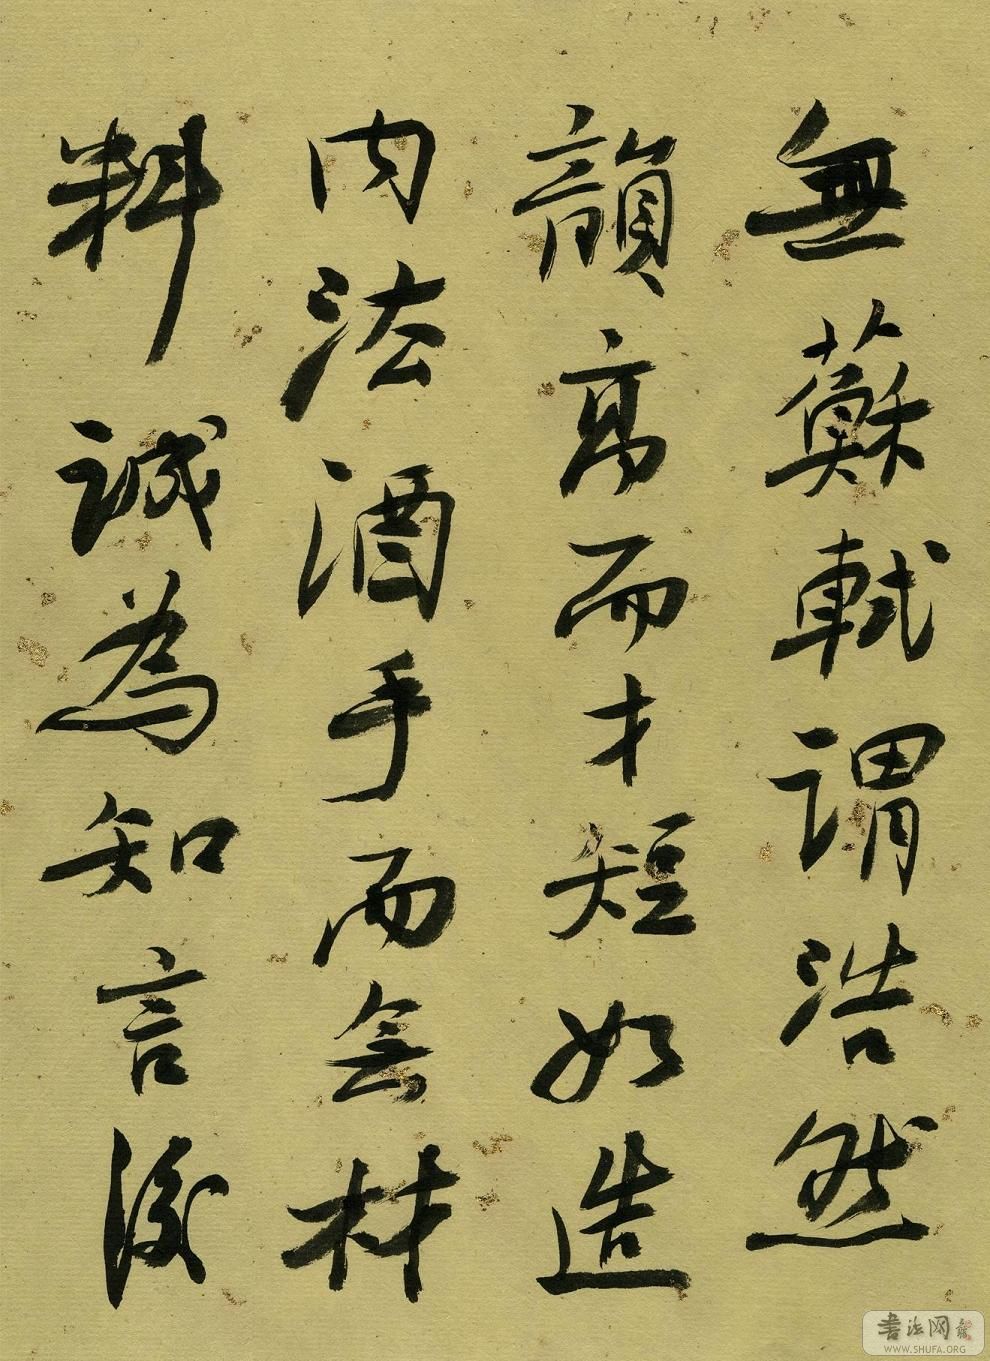 無蘇軾謂浩然
韻高而才短如造
内法酒手而無材
料誠為知言後
書法网
WWW.SHUFA.ORG